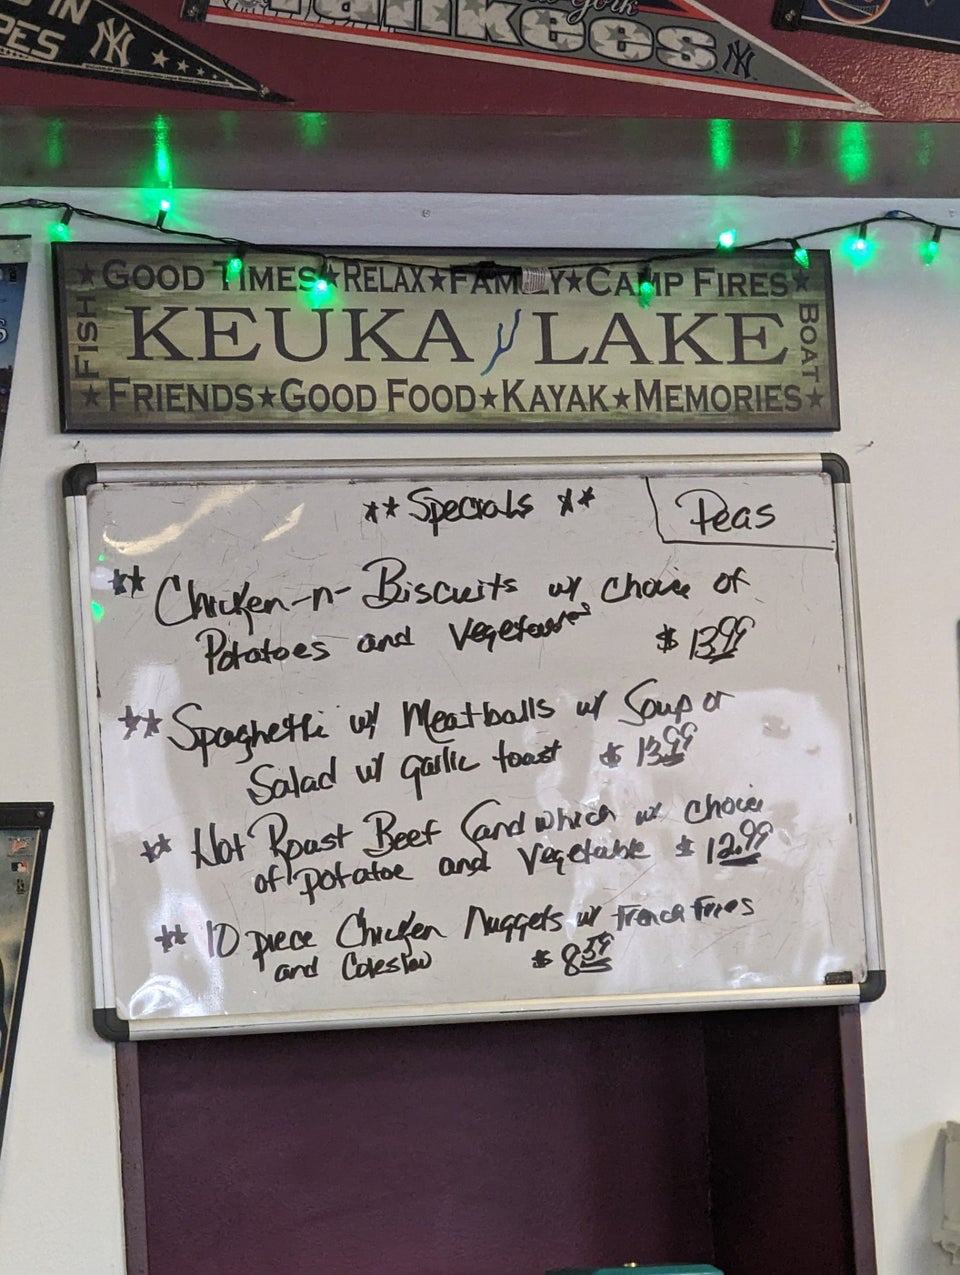 IN
PES
NY
New York
Yankees
NY
★GOOD TIMES★RELAX★FAMILY★CAMP FIRES★
FISH
KEUKA LAKE
BOAT
★FRIENDS★GOOD FOOD★KAYAK★MEMORIES★
**Specials **
Peas
** Chicken-n-Biscuits w/ choice of
Potatoes and Vegetable $ 13.99
** Spaghetti w/ Meatballs w/ Soup or
Salad w/ garlic toast $ 13.99
** Hot Roast Beef Sandwhich w/ choice
of potatoe and Vegetable $ 12.99
** 10 piece Chicken Nuggets w/ French Fries
and Coleslaw $ 8.59